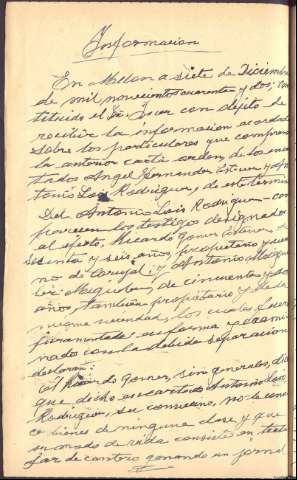 Informacion
En Millan a siete de Diciembre
de mil novecientos cuarenta y dos; cons
tituido el Sr. Juez con objeto de
recibir la informacion acordada
sobre los particulares que comprende
la anterior carta orden, de los veci
Angel Fernandez Esteves y An
tonio Luis Rodriguez, de este termino
Del Antonio Luis Rodriguez com
parecen los testigos designados
al efecto, Ricardo Gomez Esteves de
sesenta y seis años, propietario y veci
no de Carvajal; y Antonio
de cincuenta y dos
años, tambien propietario y de la
misma vecindad, los cuales fueron
juramentados en forma y exami
nados con la debida separacion
declaran:
El Ricardo Gomez, sin generales, dijo
que dicho encartado Antonio Luis
Rodriguez, su convecino, no le cono
ce bienes de ninguna clase, y que
su modo de vida consiste en traba
jar de cantero ganando un jornal